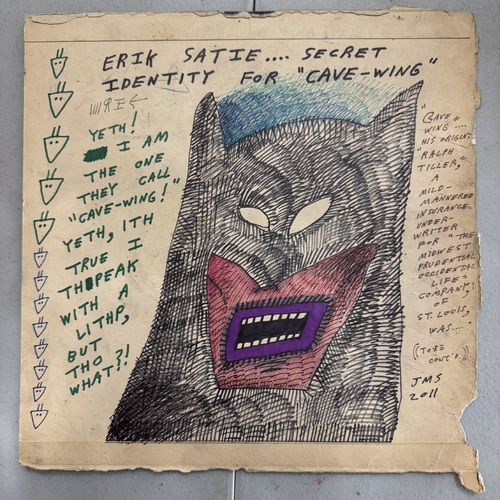 ERIK SATIE.... SECRET
IDENTITY FOR "CAVE-WING"
YETH!
I AM
THE ONE
THEY CALL
"CAVE-WING!"
YETH, ITH
TRUE I
THPEAK
WITH A
LITHP,
BUT
THO
WHAT?!
"CAVE
WING....
HIS ORIGIN:
"RALPH
TILLER,"
A
MILD-
MANNERED
INSURANCE
UNDER-
WRITER
FOR "THE
MIDWEST
PRUDENTIAL
OCCIDENTAL
LIFE
COMPANY,
OF
ST. LOUIS,
WAS...
(TO BE
CONT'D.)
JMS
2011